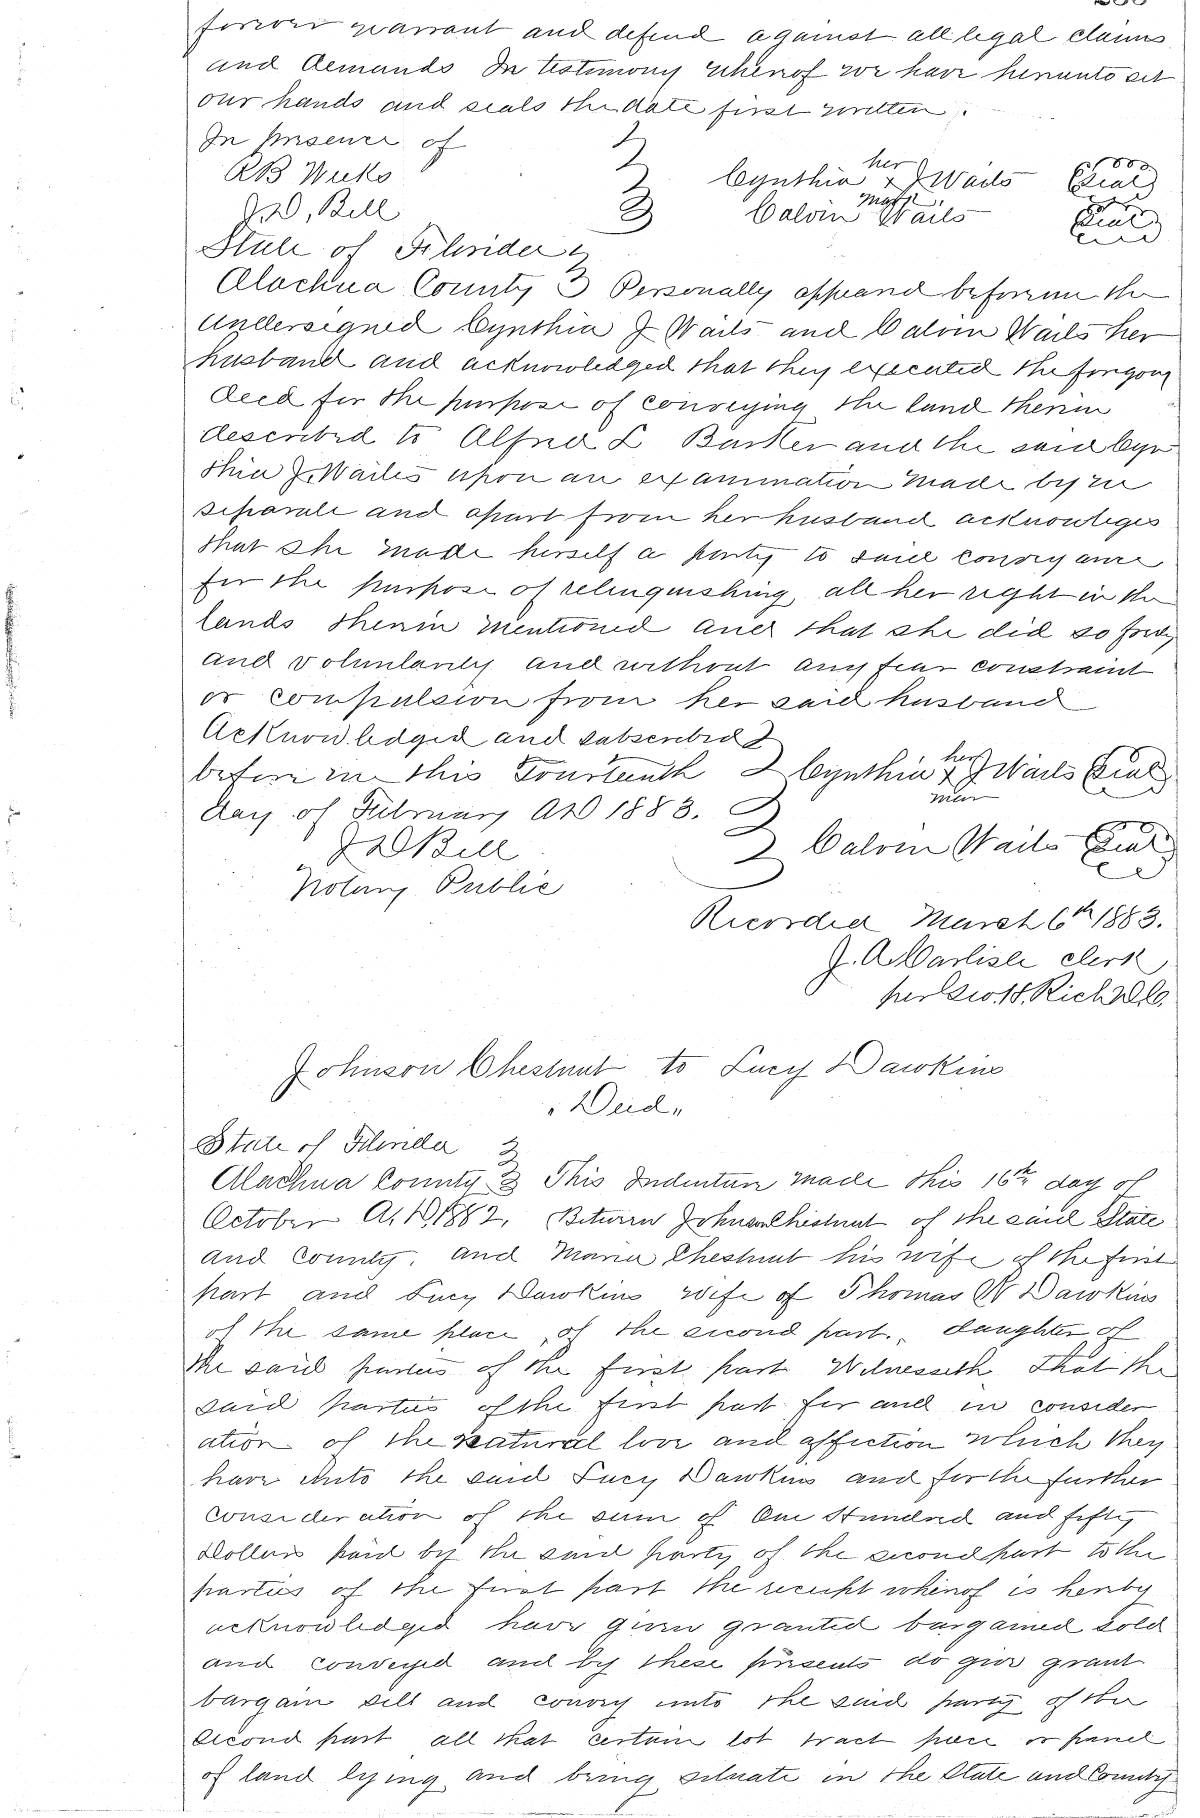 forever warrant and defend against all legal claims
and demands In testimony whereof we have hereunto set
our hands and seals the date first written.
In presence of
RB Weeks
J.D. Bell
Cynthia her x mark J Wails Seal
Calvin Wails Seal
State of Florida
Alachua County Personally appeared before me the
Undersigned Cynthia J Wails and Calvin Wails her
husband and acknowledged that they executed the forgoing
deed for the purpose of conveying the land therein
described to Alfred L Barker and the said Cyn
thia J. Wailes upon an examination made by me
separate and apart from her husband acknowleges
that she made herself a party to said conveyance
for the purpose of relinquishing all her right in the
lands therein mentioned and that she did so freely
and voluntarily and without any fear constraint
or compulsion from her said husband
Acknowledged and subscribed
before me this Fourteenth
day of February AD 1883.
Cynthia her x mark J Wails Seal
Calvin Wails Seal
J D Bell
Notary Public
Recorded March 6th 1883.
J. A. Carlisle clerk
per Geo. H. Rich D.C.
Johnson Chestnut to Lucy Dawkins
"Deed"
State of Florida
Alachua County This Indenture made this 16th day of
October A.D. 1882, Between Johnson Chestnut of the said State
and County. and Maria Chestnut his wife of the first
part and Lucy Dawkins wife of Thomas W Dawkins
of the same place, of the second part., daughter of
the said parties of the first part Witnesseth That the
said parties of the first part for and in consider
ation of the natural love and affection which they
have unto the said Lucy Dawkins and for the further
consideration of the sum of One Hundred and fifty
Dollars paid by the said party of the second part to the
parties of the first part the receipt whereof is hereby
acknowledged have given granted bargained sold
and conveyed and by these presents do give grant
bargain sell and convey unto the said party of the
second part all that certain lot tract piece or parcel
of land lying and being situate in the State and County